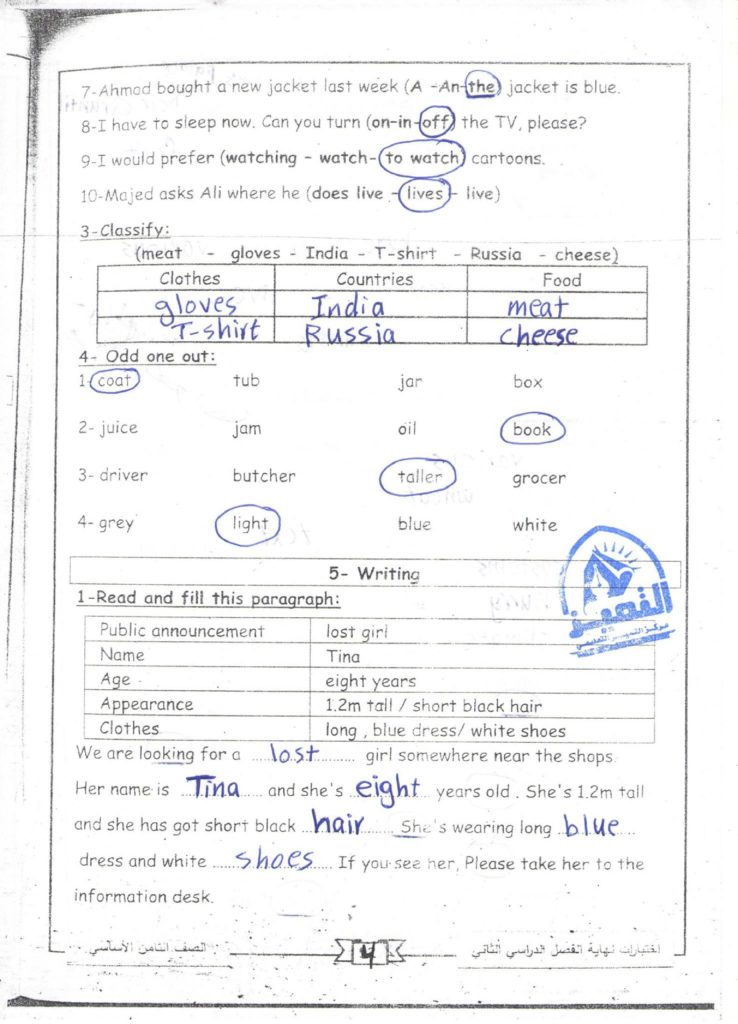 7-Ahmad bought a new jacket last week (A -An-the) jacket is blue.
8-I have to sleep now. Can you turn (on-in-off) the TV, please?
9-I would prefer (watching - watch- to watch) cartoons.
10-Majed asks Ali where he (does live - lives - live)
3-Classify:
(meat - gloves - India - T-shirt - Russia - cheese)
Clothes Countries Food
gloves India meat
T-shirt Russia cheese
4- Odd one out:
1- coat tub jar box
2- juice jam oil book
3- driver butcher taller grocer
4- grey light blue white
5- Writing
1-Read and fill this paragraph:
Public announcement lost girl
Name Tina
Age eight years
Appearance 1.2m tall / short black hair
Clothes long , blue dress/ white shoes
We are looking for a lost girl somewhere near the shops
Her name is Tina and she's eight years old . She's 1.2m tall
and she has got short black hair She's wearing long blue
dress and white shoes. If you see her, Please take her to the
information desk.
اختبارات نهاية الفصل الدراسي الثاني الصف الثامن الأساسي